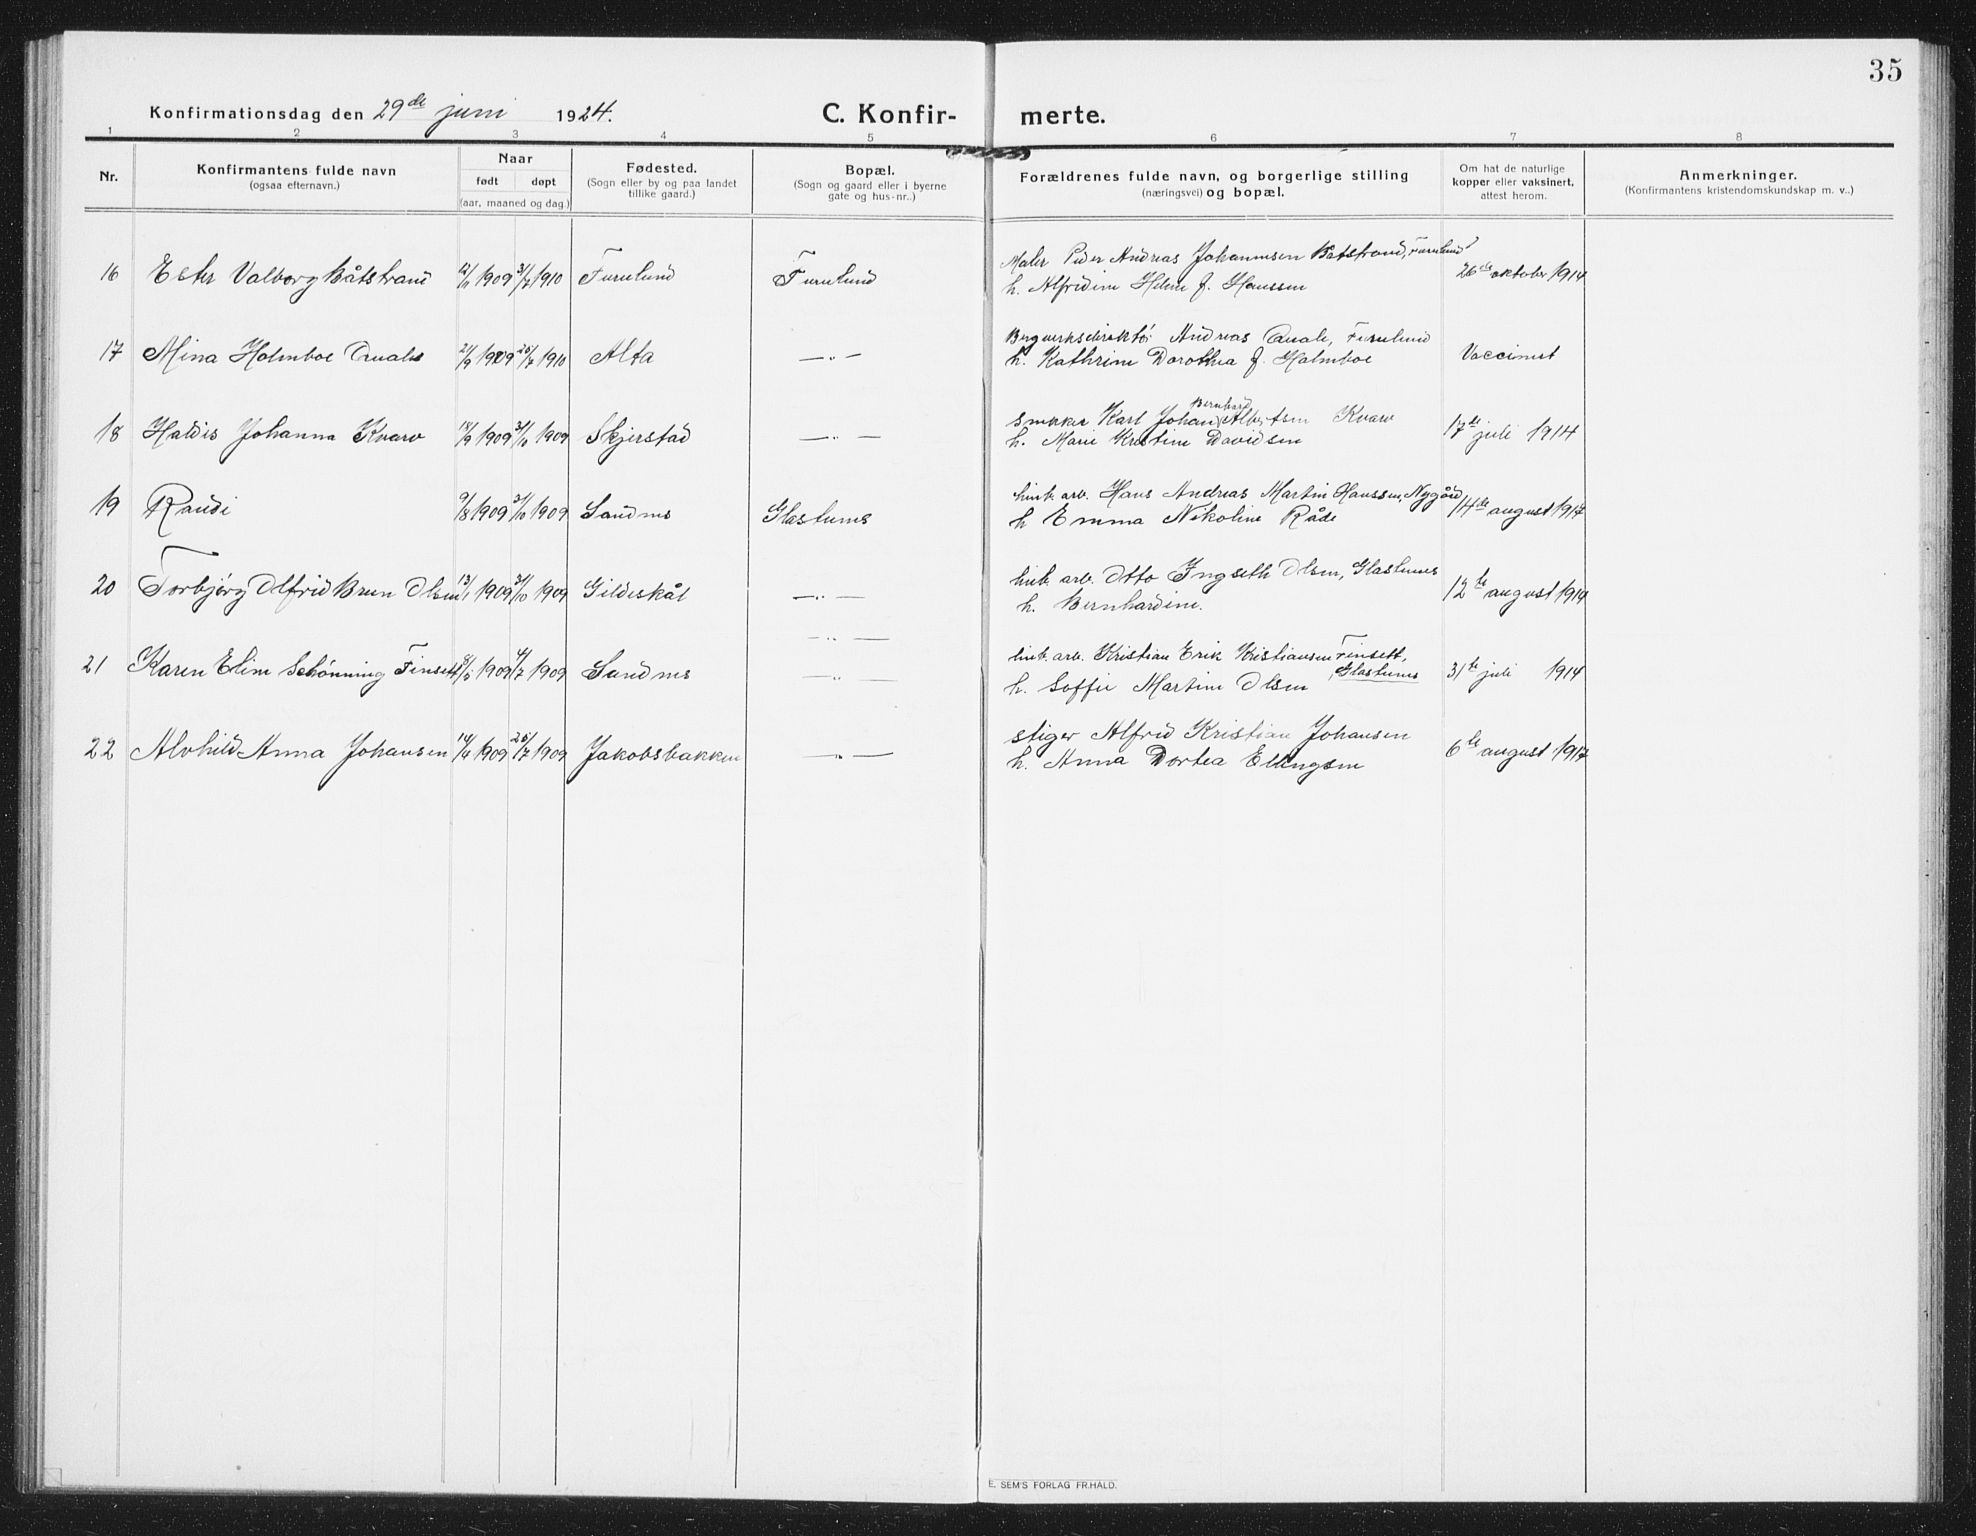 35
Konfirmationsdag den 29de juni 1924.
C. Konfir- merte.
1 2 3 4 5 6 7 8
Nr.
Konfirmantens fulde navn
(ogsaa efternavn.)
Naar
født døpt
(aar, maaned og dag.)
Fødested.
(Sogn eller by og paa landet
tillike gaard.)
Bopæl.
(Sogn og gaard eller i byerne
gate og hus-nr..)
Forældrenes fulde navn, og borgerlige stilling
(næringsvei) og bopæl.
Om hat de naturlige
kopper eller vaksinert,
attest herom.
Anmerkninger.
(Konfirmantens kristendomskundskap m. v..)
Maler Peder Andreas Johannesen Båtstrand, Furulund
16 Ester Valborg Båtstrand 1909 1910 Furulund Furulund 26de oktober 1914
h. Alfridine Helene f. Hanssen
Bergverksdirektør Andreas Quale, Furulund
17 Mina Holmboe Quale 21/9 1909 1910 Alta —„— Vaccinert
h. Kathrine Dorothea f. Holmboe
Bernhard
smekker Karl Johan Albertsen Kvarv
18 Haldis Johanna Kvarv 18/9 1909 31/10 1909 Skjerstad —„— 17de juli 1914
h. Marie Kristine Davidsen
hint. arb. Hans Andreas Martin Hanssen, Nygård
19 Randi 9/8 1909 31/10 1909 Sandnes Glastunes 14de august 1917
h Emma Nikoline Råde
hint. arb. Otto Ingseth Olsen, Glastunes
20 Torbjørg Olfrid Brun Olsen 13/1 1909 31/10 1909 Gildeskål —„— 12te august 1914
h. Bernhardine.
—„—
hint. arb. Kristian Erik Kristiansen Finsett,
Glastunes
21 Karen Eline Schønning Finsett 8/5 1909 4/7 1909 Sandnes —„— 31te juli 1914
h. Soffie Martine Olsen
stiger Alfrid Kristian Johansen
22 Alvhild Anna Johansen 14/4 1909 25/7 1909 Jakobsbakken —„— 6te august 1917
h. Anna Dortea Ellingsen
E. SEM'S FORLAG FR.HALD.